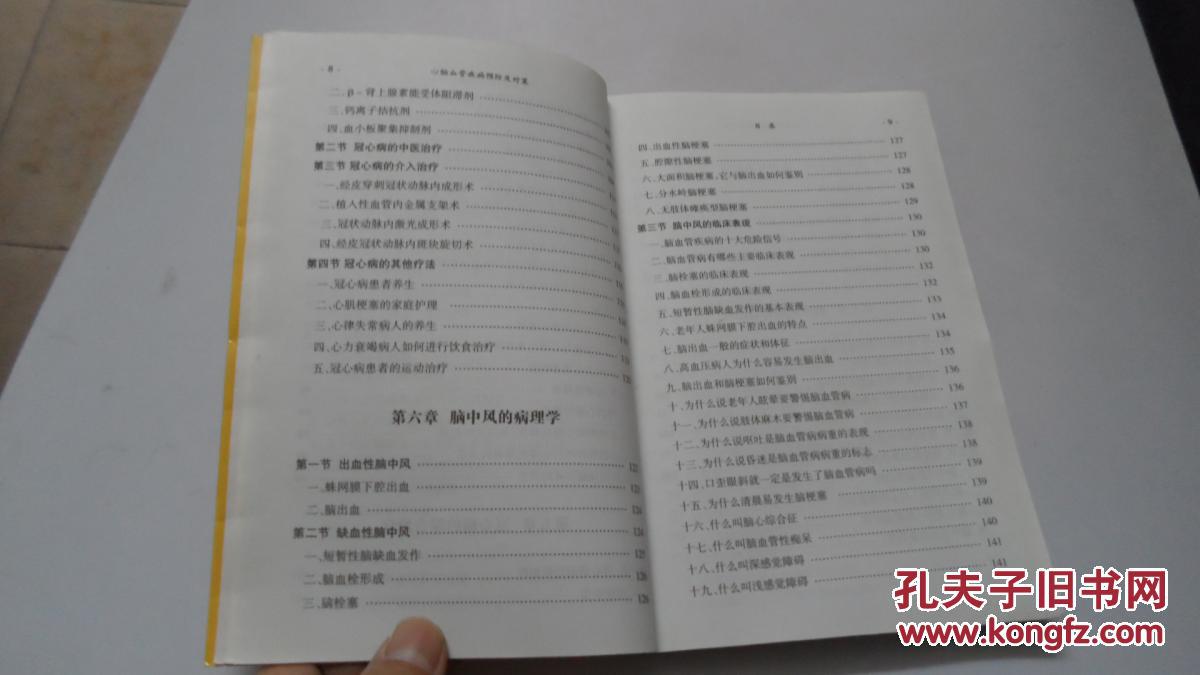 · 8 ·
心脑血管疾病预防及对策
二、β-肾上腺素能受体阻滞剂
三、钙离子拮抗剂
四、血小板聚集抑制剂
第二节 冠心病的中医治疗
第三节 冠心病的介入治疗
一、经皮穿刺冠状动脉内成形术
二、植入性血管内金属支架术
三、冠状动脉内激光成形术
四、经皮冠状动脉内斑块旋切术
第四节 冠心病的其他疗法
一、冠心病患者养生
二、心肌梗塞的家庭护理
三、心律失常病人的养生
四、心力衰竭病人如何进行饮食治疗
五、冠心病患者的运动治疗
第六章 脑中风的病理学
第一节 出血性脑中风
一、蛛网膜下腔出血
二、脑出血 124
第二节 缺血性脑中风 124
一、短暂性脑缺血发作 125
二、脑血栓形成 126
三、脑栓塞 126
目 录
· 9 ·
四、出血性脑梗塞 127
五、腔隙性脑梗塞 127
六、大面积脑梗塞,它与脑出血如何鉴别 128
七、分水岭脑梗塞 128
八、无肢体瘫痪型脑梗塞 129
第三节 脑中风的临床表现 130
一、脑血管疾病的十大危险信号 130
二、脑血管病有哪些主要临床表现 130
三、脑栓塞的临床表现 132
四、脑血栓形成的临床表现 132
五、短暂性脑缺血发作的基本表现 133
六、老年人蛛网膜下腔出血的特点 134
七、脑出血一般的症状和体征 134
八、高血压病人为什么容易发生脑出血 135
九、脑出血和脑梗塞如何鉴别 136
十、为什么说老年人眩晕要警惕脑血管病 136
十一、为什么说肢体麻木要警惕脑血管病 137
十二、为什么说呕吐是脑血管病病重的表现 138
十三、为什么说昏迷是脑血管病病重的标志 138
十四、口歪眼斜就一定是发生了脑血管病吗 139
十五、为什么清晨易发生脑梗塞 139
十六、什么叫脑心综合征 140
十七、什么叫脑血管性痴呆 140
十八、什么叫深感觉障碍 141
十九、什么叫浅感觉障碍 141
孔夫子旧书网
www.kongfz.com